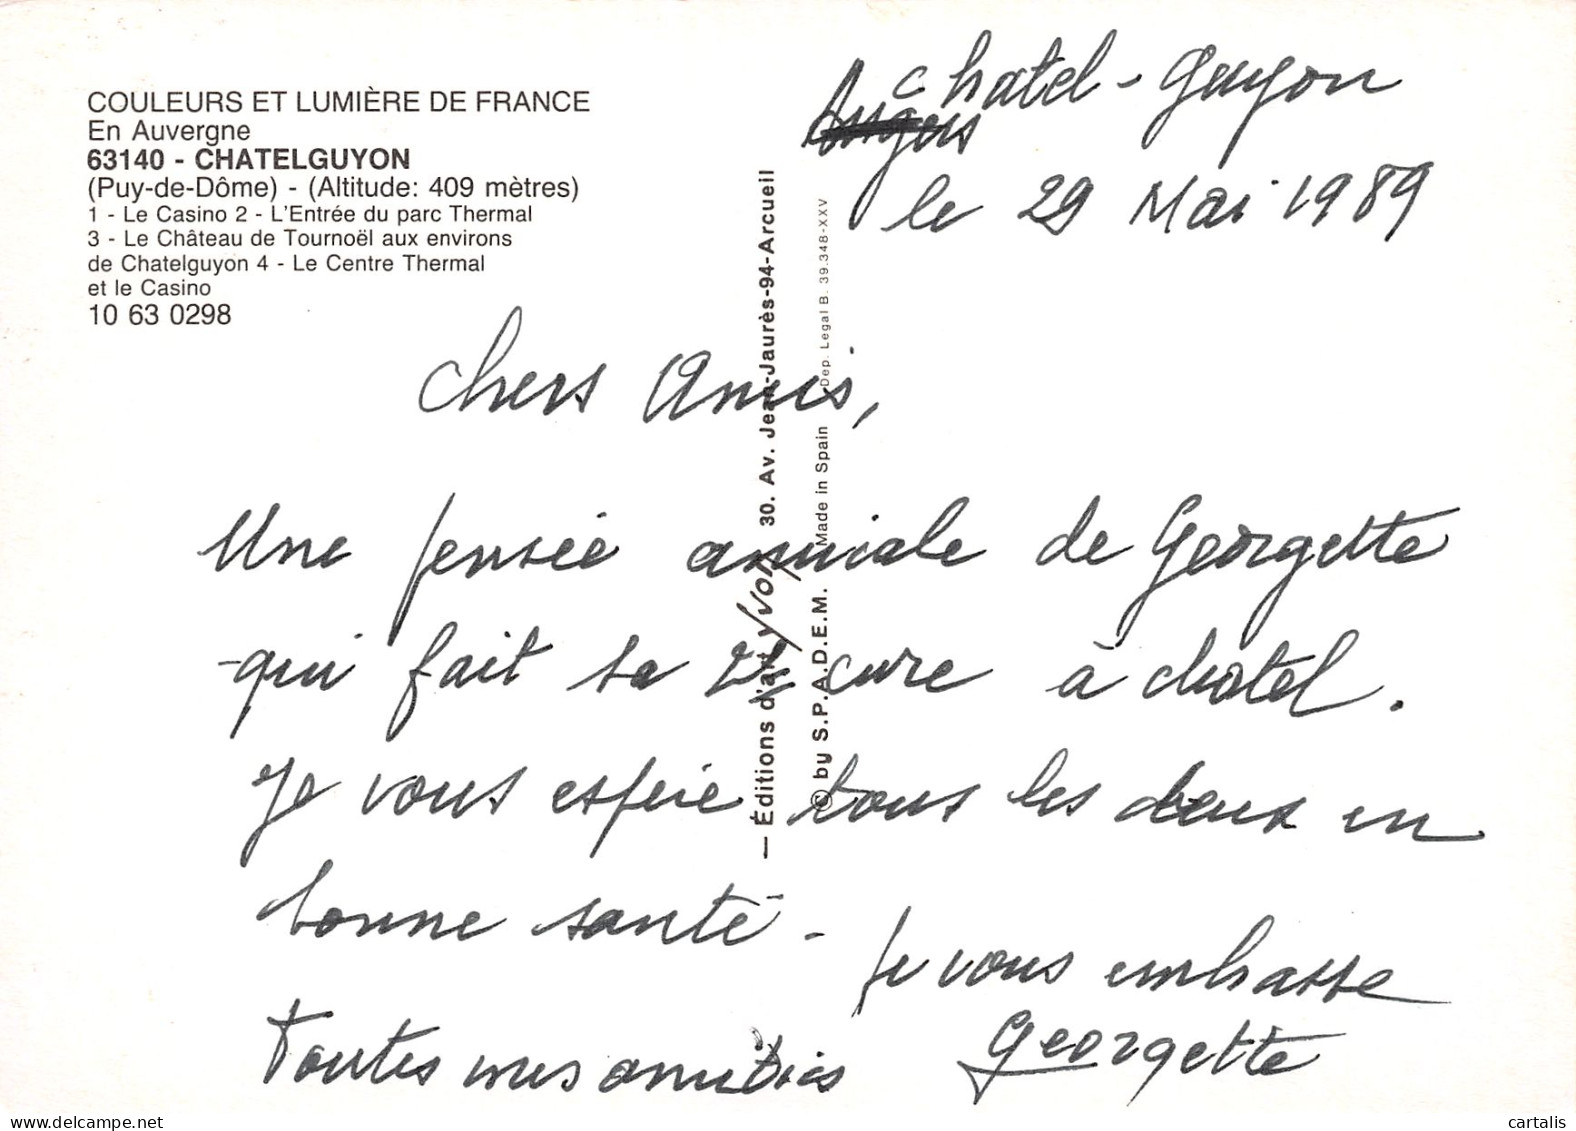 COULEURS ET LUMIÈRE DE FRANCE
En Auvergne
63140 - CHATELGUYON
(Puy-de-Dôme) - (Altitude: 409 mètres)
1 - Le Casino 2 - L'Entrée du parc Thermal
3 - Le Château de Tournoël aux environs
de Chatelguyon 4 - Le Centre Thermal
et le Casino
10 63 0298
— Éditions d'art Yvon 30. Av. Jean-Jaurès-94-Arcueil
© by S.P.A.D.E.M. Made in Spain Dep. Legal B. 39.348-XXV
chatel-Guyon
le 29 Mai 1989
Chers Amis,
Une pensée amicale de Georgette
qui fait sa cure à chatel.
Je vous espère tous les deux en
bonne santé -
Je vous embrasse
Toutes mes amitiés
Georgette
cartalis